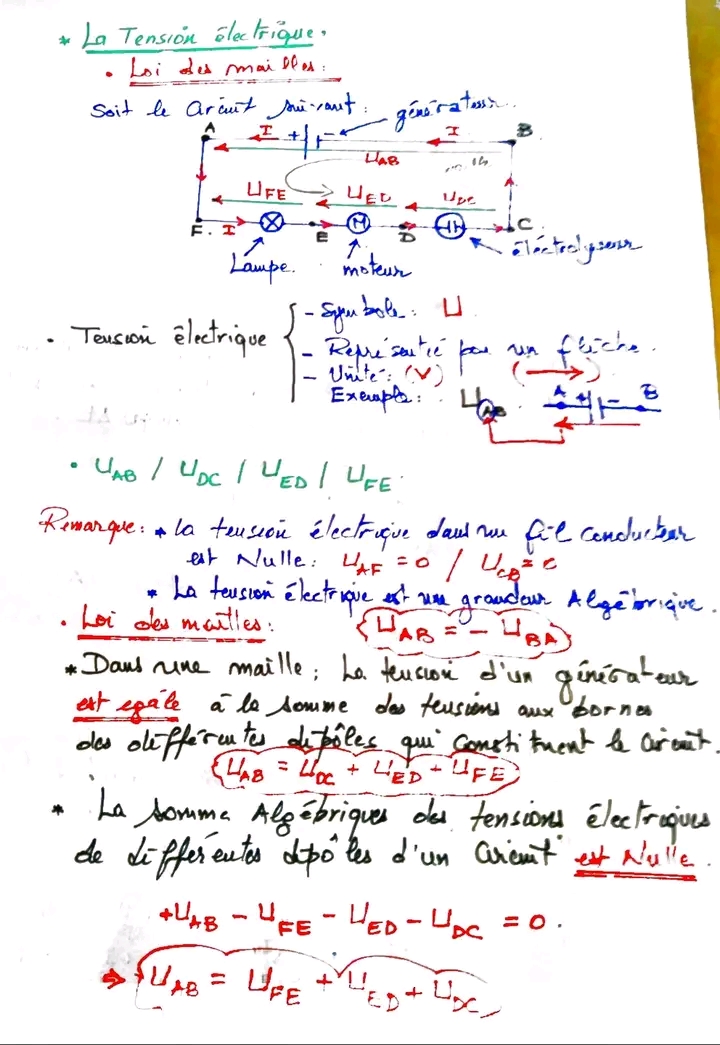 * La Tension électrique.
• Loi des mailles:
Soit le circuit suivant: générateur.
A I + - I B
UAB
UFE UED UDC
F. I E M D C
Lampe. moteur électrolyseur
• Tension électrique
- Symbole: U
- Représentée par un flèche.
- Unité: (V) (→)
Exemple: UAB A + - B
• UAB / UDC / UED / UFE.
Remarque: * La tension électrique dans un fil conducteur
est Nulle: UAF = 0 / UCB = 0
* La tension électrique est une grandeur Algébrique.
• Loi des mailles: UAB = - UBA
* Dans une maille; La tension d'un générateur
est egale à la somme des tensions aux bornes
des différentes dipôles qui constituent le circuit.
UAB = UDC + UED + UFE
* La somme Algébriques des tensions électriques
de différentes dipôles d'un Circuit est Nulle.
+UAB - UFE - UED - UDC = 0.
⇒ UAB = UFE + UED + UDC